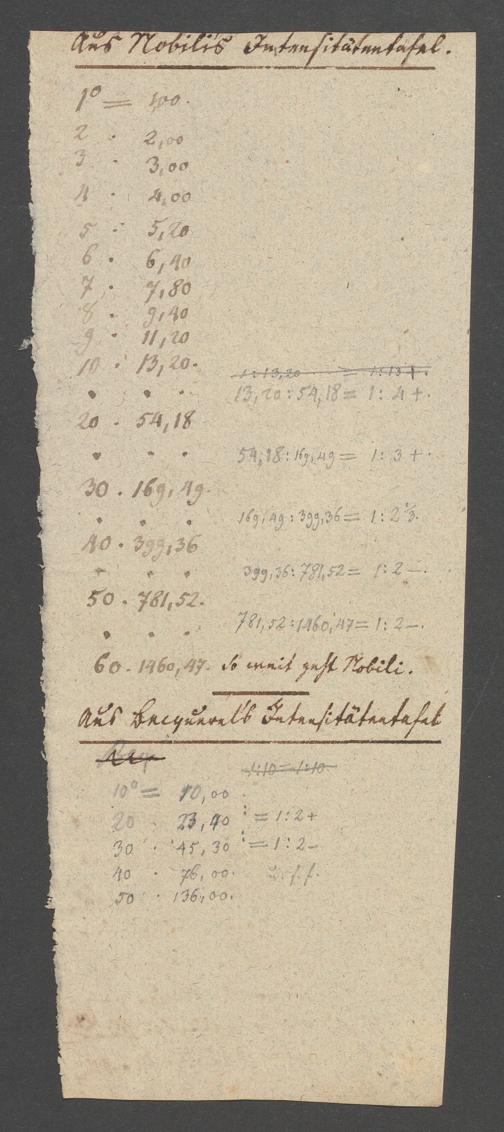 Aus Nobili's Intensitätentafel.
1° = 1,00.
2 · 2,00
3 · 3,00
4 · 4,00
5 · 5,20
6 · 6,40
7 · 7,80
8 · 9,40
9 · 11,20
10 · 13,20.
1 : 13,20 = 1 : 13 +.
13,20 : 54,18 = 1 : 4 +.
20 · 54,18
54,18 : 169,49 = 1 : 3 +.
30 · 169,49.
169,49 : 399,36 = 1 : 2 1/3.
40 · 399,36
399,36 : 781,52 = 1 : 2 —.
50 · 781,52.
781,52 : 1460,47 = 1 : 2 —.
60 · 1460,47. So weit geht Nobili.
Aus Becquerel's Intensitätentafel
1 : 10 = 1 : 10.
10° = 10,00
20 · 23,40 = 1 : 2 +
30 · 45,30 = 1 : 2 —
40 · 76,00. u. s. f.
50 · 136,00.